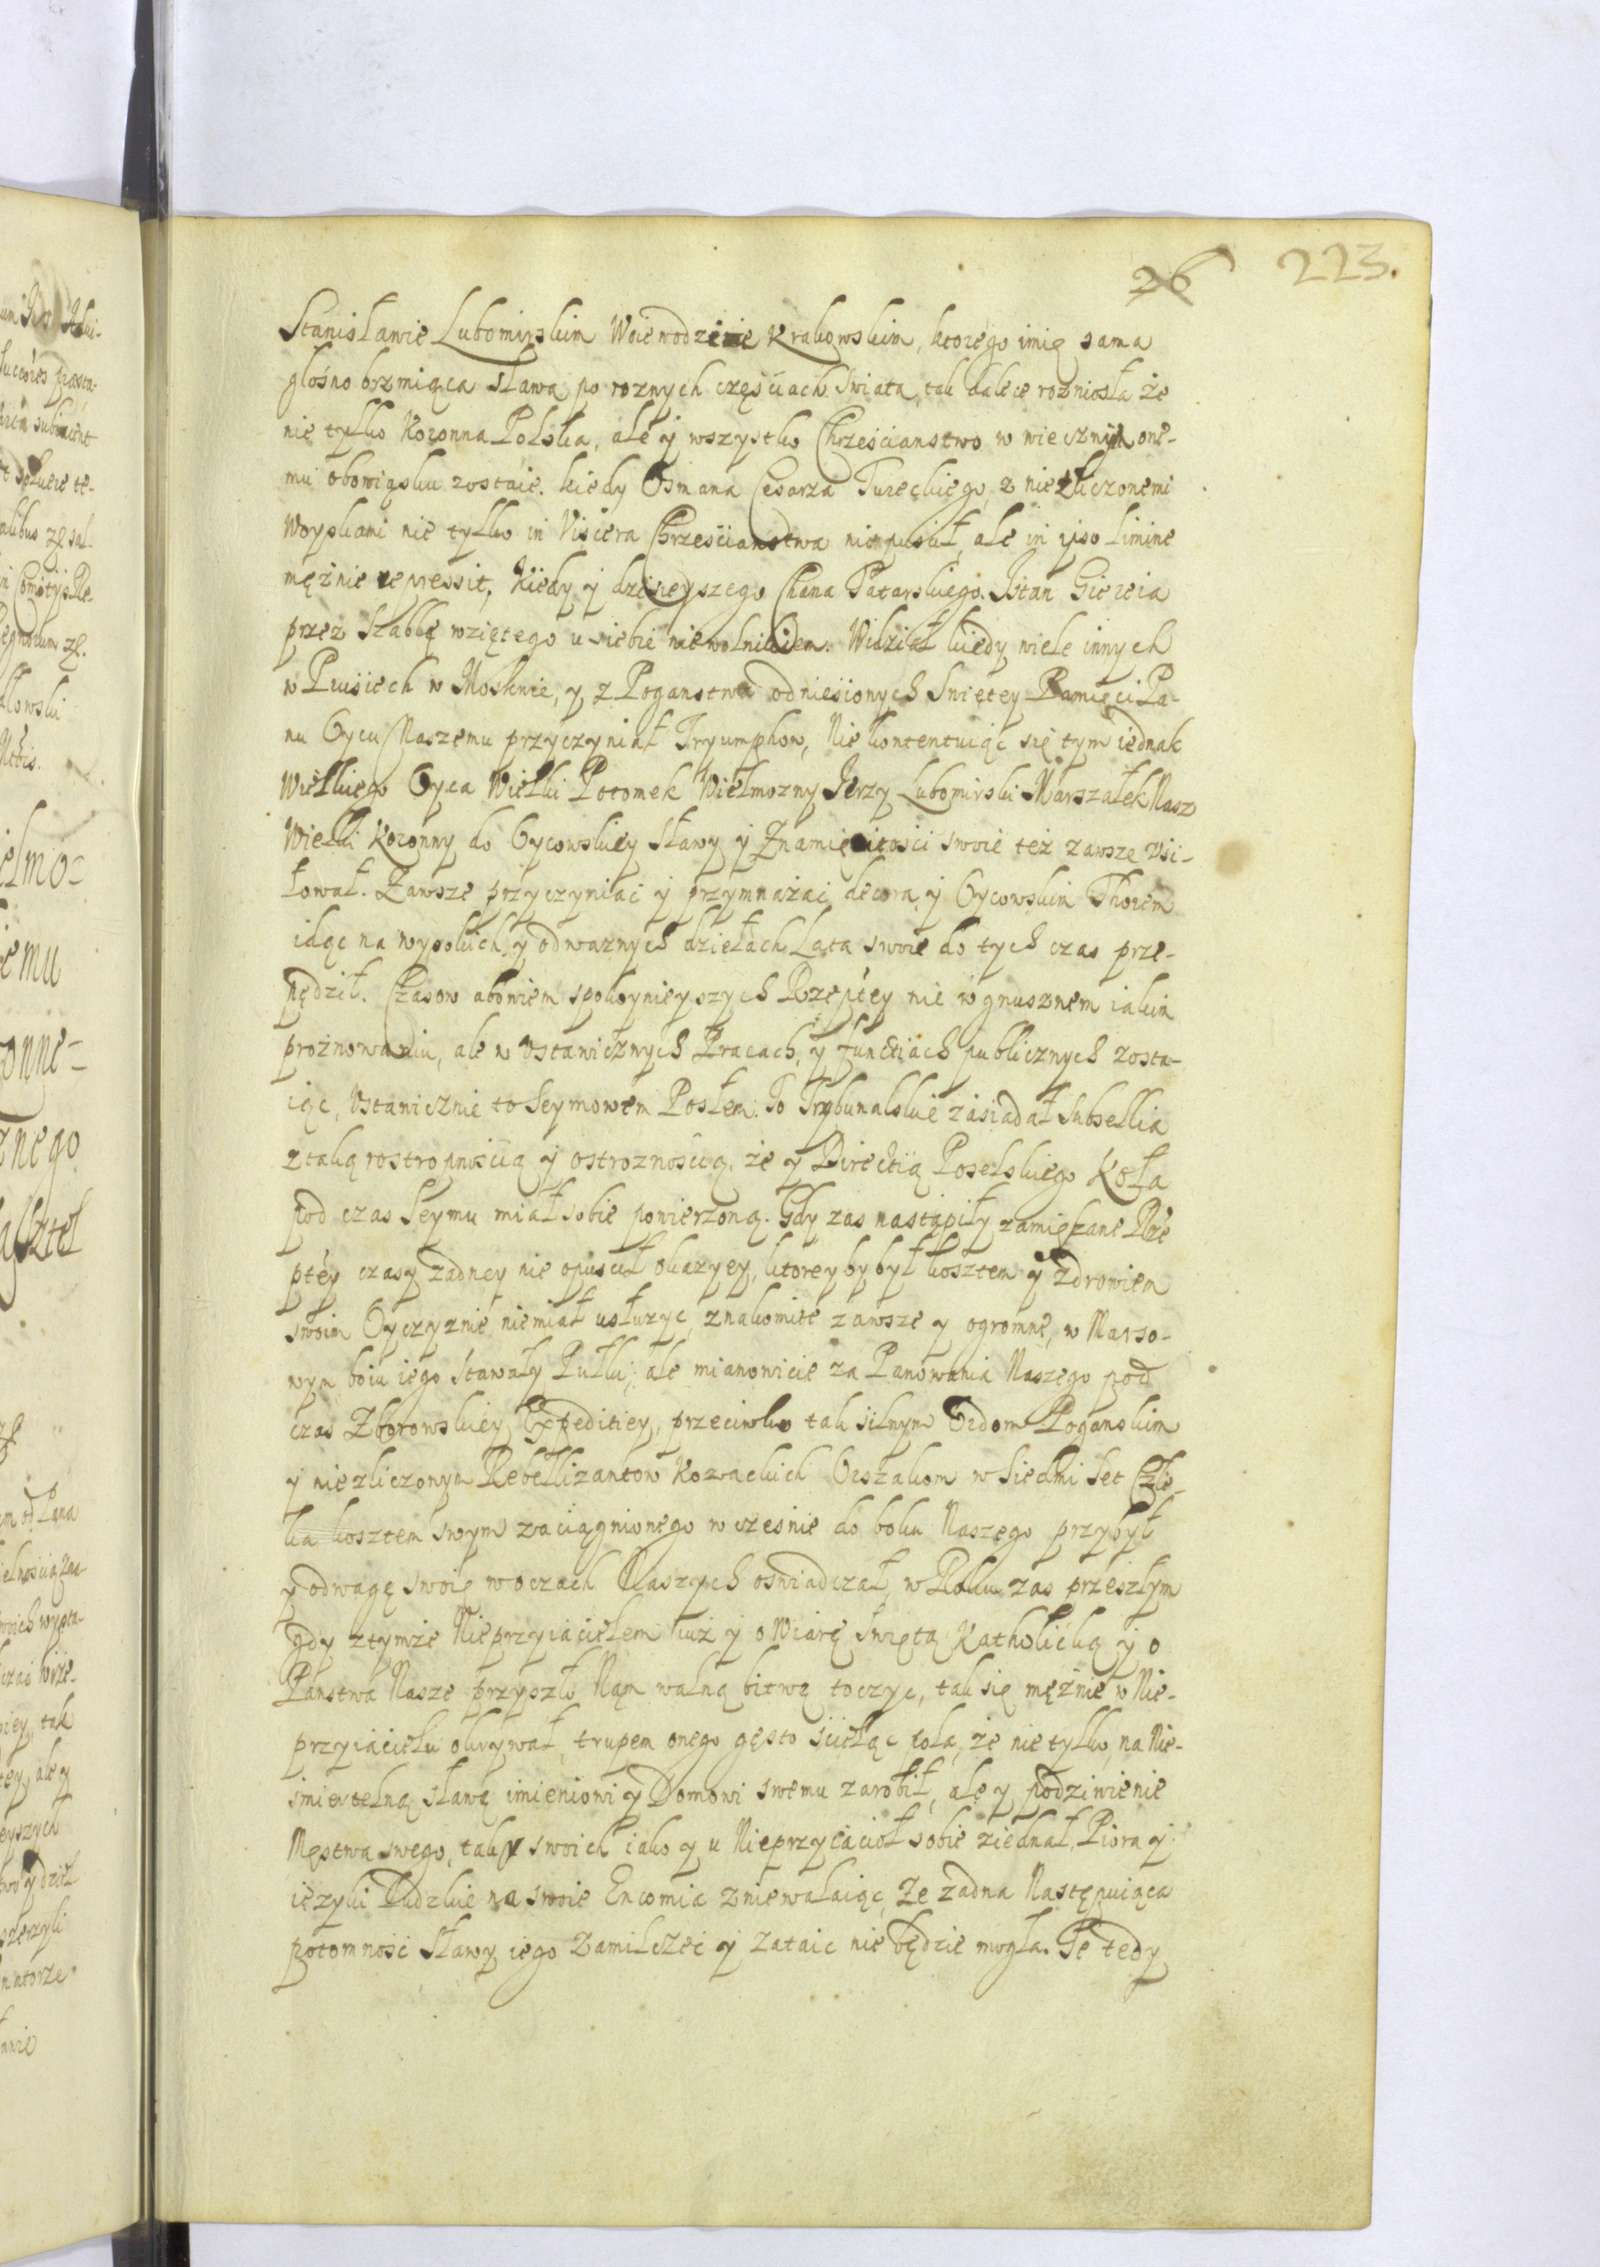 26 223.
Stanisławie Lubomirskim Woiewodzie Krakowskim, ktorego imię sama
głośno brzmiąca sława po roznych częściach świata tak dalece rozniosła że
nie tylko Koronna Polska, ale y wszystko Chrześcianstwo w wiecznym one-
mu obowiąsku zostaie. kiedy Osmana Cesarza Tureckiego z niezliczonemi
Woyskami nie tylko in Viscera Chrześcianstwa nie puścił, ale in ipso limine
mężnie repressit, Kiedy y dzisieyszego Chana Tatarskiego Islan Giereia
przez Szablę wziętego u siebie niewolnikiem Widział kiedy wiele innych
w Prusiech w Moskwie, y z Poganstwa odniesionych Świętey Pamięci Pa-
nu Oycu Naszemu przyczyniał Tryumphow, Nie kontentuiąc się tym iednak
Wielkiego Oyca Wielki Potomek Wielmozny Jerzy Lubomirski Marszałek Nasz
Wielki Koronny do Oycowskiey Sławy y Znamienitości swoie też zawsze Vsi-
łował. Zawsze przyczyniać y przymnażać decora y Oycowskim Thorem
idąc na wysokich y odwaznych dziełach Lata swoie do tych czas prze-
pędził. Czasow abowiem spokoynieyszych Rzeptey nie w gnusznem iakim
prożnowaniu, ale w Vstawicznych Pracach, y functiach publicznych zosta-
iąc, Vstawicznie to Seymowem Posłem. To Trybunalskie zasiadał Subsellia
z taką rostropnością y ostroznością, że y Direktią Poselskiego Koła
pod czas Seymu miał sobie powierzoną. Gdy zas nastąpiły zamieszane Rze
ptey czasy zadney nie opuścił okazyey, ktoreyby był kosztem y zdrowiem
swoim Oyczyznie niemiał usłuzyc, znakomite zawsze y ogromne, w Marso-
wym boiu iego stawały Pułki; ale mianowicie za Panowania Naszego pod
czas Zborowskiey Expeditiey, przeciwko tak silnym Ordom Poganskim
y niezliczonym Rebellizantow Kozackich Orszakom w Siedmi Set Człe-
ka kosztem swym zaciągnionego wczesnie do boku Naszego przybył
y odwagę swoię w oczach Naszych oswiadczał, w Roku zas przeszłym
gdy z tymże Nieprzyiacielem iuż y o Wiarę świętą Katholicką y o
Państwa Nasze przyszło Nam walną bitwę toczyc, tak się mężnie w Nie-
przyiacielu okrywał, trupem onego gęsto ścieląc pola, że nie tylko, na Nie-
śmiertelną sławę imieniowi y Domowi swemu zarobił, ale y podziwienie
Męstwa swego, tak u swoich iako y u Nieprzyiaciół sobie ziednał, Piora y
ięzyki Ludzkie na swoie Encomia zniewalaiąc, Ze żadna Następuiąca
potomność Sławy iego zamilczeć y zataić nie będzie mogła. Te tedy